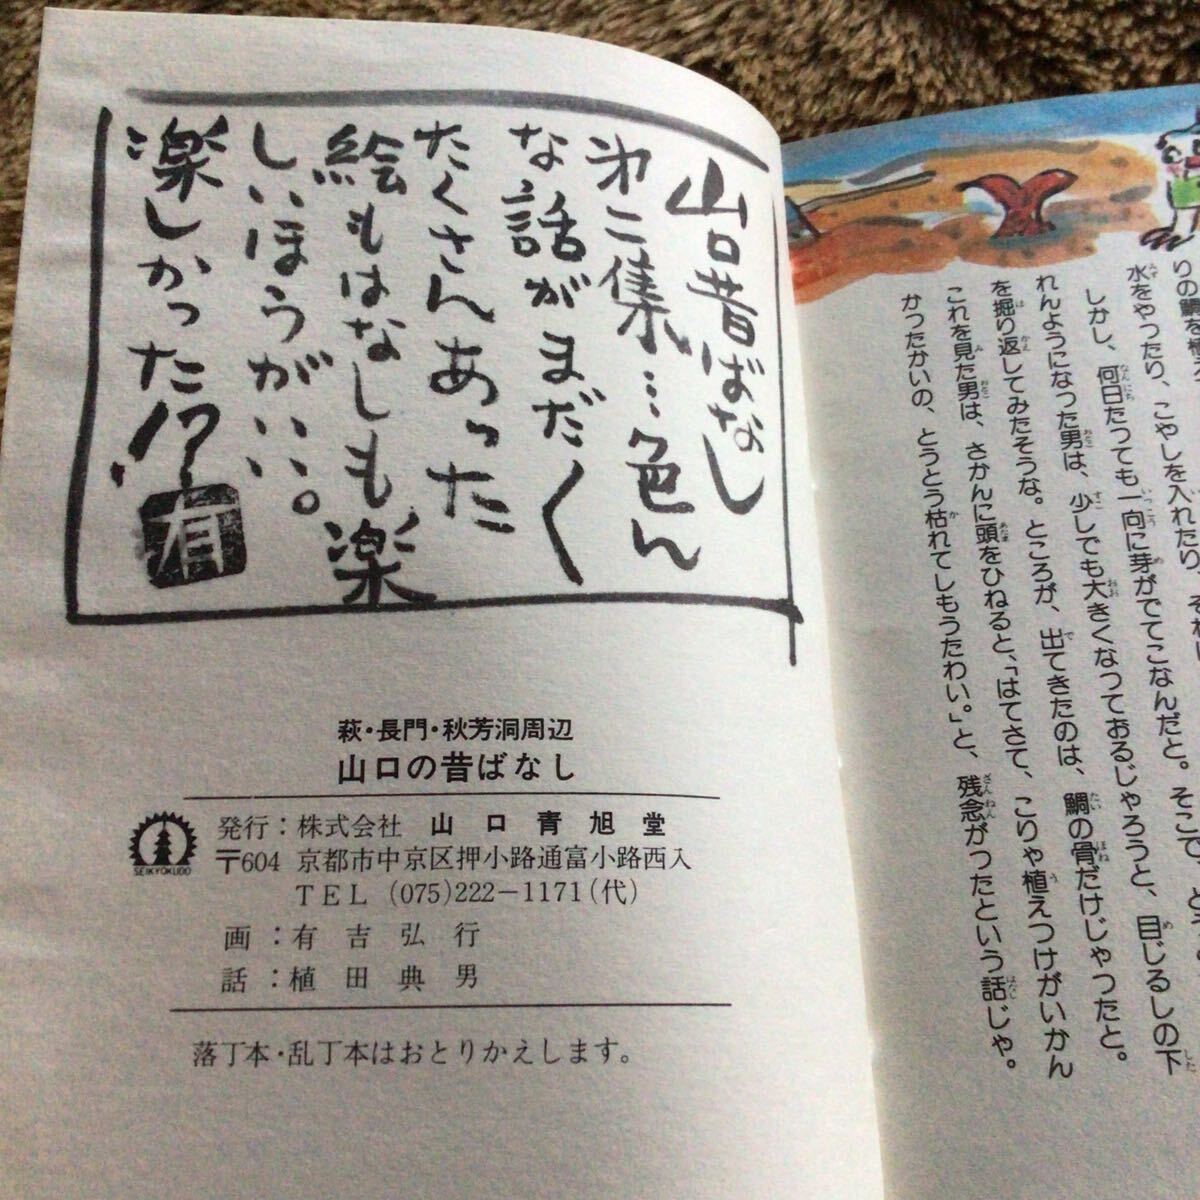 りの鯛を植え
水をやったり、こやしを入れたり、
しかし、何日たっても一向に芽がでてこなんだと。そこで、と
れんようになった男は、少しでも大きくなっておるじゃろうと、目じるしの下
を掘り返してみたそうな。ところが、出てきたのは、鯛の骨だけじゃったと。
これを見た男は、さかんに頭をひねると、「はてさて、こりゃ植えつけがいかん
かったかいの、とうとう枯れてしもうたわい。」と、残念がったという話じゃ。
山口昔ばなし
㐧二集…色ん
な話がまだ〱
たくさんあった
絵もはなしも楽
しいほうがいい。
楽しかった!?
有
萩・長門・秋芳洞周辺
山口の昔ばなし
SEIKYOKUDO
発行：株式会社 山口青旭堂
〒604 京都市中京区押小路通富小路西入
TEL (075)222－1171(代)
画：有吉弘行
話：植田典男
落丁本・乱丁本はおとりかえします。